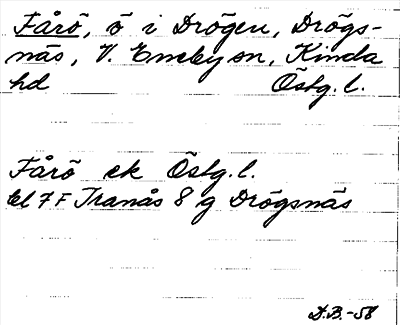 Fårö, ö i Drögen, Drögs-
näs, V. Eneby sn, Kinda
hd Östg. l.
Fårö ek Östg. l.
bl 7 F Tranås 8 g Drögsnäs
D.B.-58